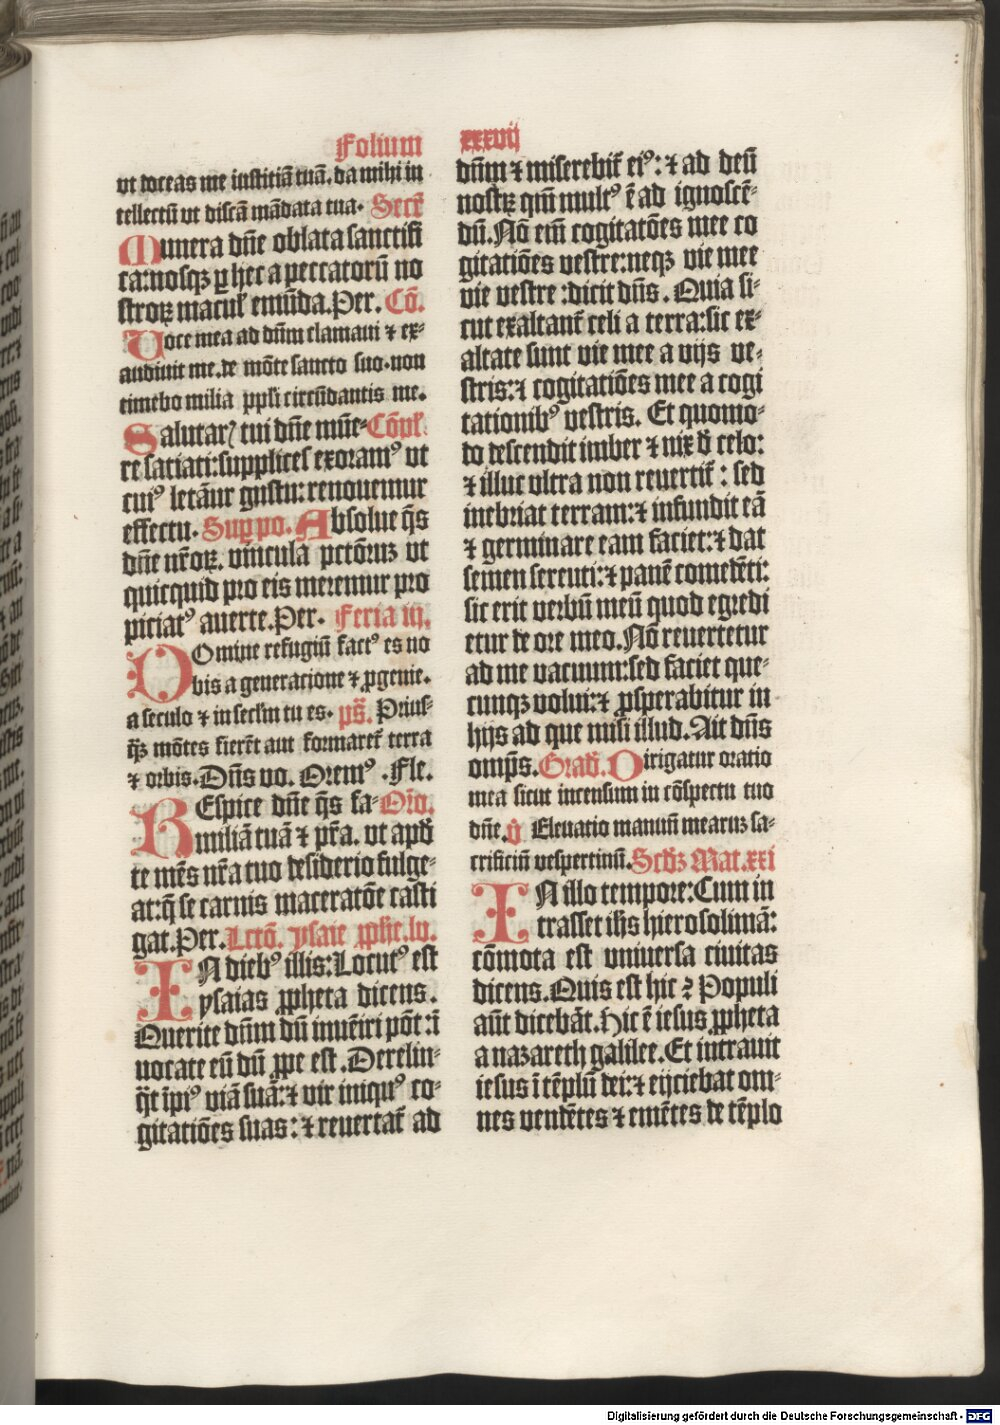 Folium xxxvij
vt doceas me iustitiā tuā. da mihi in
tellectū vt discā mādata tua. Secr̄
Munera dn̄e oblata sanctifi
ca: nosqꝫ ꝑ hec a peccatorū no
stroꝝ macul' emūda. Per. Cō.
Uoce mea ad dūm clamaui ⁊ ex⸗
audiuit me. de mōte sancto suo. non
timebo milia ppl'i circūdantis me.
Salutarꝭ tui dn̄e mūe⸗ Cōpl'.
re satiati: supplices exoramꝰ vt
cuiꝰ letāur gustu: renouemur
effectu. Suꝑ po. Absolue q̄s
dn̄e nr̄oꝝ. vincula pctōruꝫ vt
quicquid pro eis meremur pro
piciatꝰ auerte. Per. Feria iij.
DOmine refugiū factꝰ es no
bis a generacione ⁊ ꝓgenie.
a seculo ⁊ in secl'm tu es. ps̄. Prius⸗
q̄ꝫ mōtes fierēt aut formaret̄ terra
⁊ orbis. Dn̄s vo. Oremꝰ. Fle.
REspice dn̄e q̄s fa⸗ Or̄o.
miliā tuā ⁊ pr̄a. vt apđ
te mēs nr̄a tuo desiderio fulge⸗
at: q̄ se carnis maceratōe casti
gat. Per. Lctō. ysaie ꝓph̄e. lv.
IN diebꝰ illis: Locutꝰ est
ysaias ꝓpheta dicens.
Querite dūm dū inuēiri pōt: ī
uocate eū dū ꝓpe est. Derelin⸗
q̄t īpiꝰ viā suā: ⁊ vir iniquꝰ co⸗
gitatiōes suas: ⁊ reuertat̄ ad
dūm ⁊ miserebit̄ eiꝰ: ⁊ ad deū
nostrꝝ qm̄ multꝰ ē ad ignoscē⸗
dū. Nō em̄ cogitatōes mee co
gitatiōes vestre: neqꝫ vie mee
vie vestre: dicit dn̄s. Quia si⸗
cut exaltant̄ celi a terra: sic ex⸗
altate sunt vie mee a vijs ve⸗
stris: ⁊ cogitatiōes mee a cogi
tationibꝰ vestris. Et quomo⸗
do descendit imber ⁊ nix đ celo:
⁊ illuc vltra non reuertit̄: sed
inebriat terram: ⁊ infundit eā
⁊ germinare eam faciet: ⁊ dat
semen serenti: ⁊ panē comedēti:
sic erit verbū meū quod egredi
etur de ore meo. Nō reuertetur
ad me vacuum: sed faciet que⸗
cunqꝫ volui: ⁊ ꝓsperabitur in
hijs ad que misi illud. Ait dn̄s
omp̄s. Grad̄. Dirigatur oratio
mea sicut incensum in cōspectu tuo
dn̄e. v̄ Eleuatio manuū mearuꝫ sa⸗
crificiū vespertinū. Scd̄ꝫ Mat. xxi
IN illo tempore: Cum in
trasset ih̄s hierosolimā:
cōmota est vniuersa ciuitas
dicens. Quis est hic? Populi
aūt dicebāt. Hic ē iesus ꝓpheta
a nazareth galilee. Et intrauit
iesus ī tēplū dei: ⁊ eijciebat om⸗
nes vendētes ⁊ emētes de tēplo
Digitalisierung gefördert durch die Deutsche Forschungsgemeinschaft - DFG